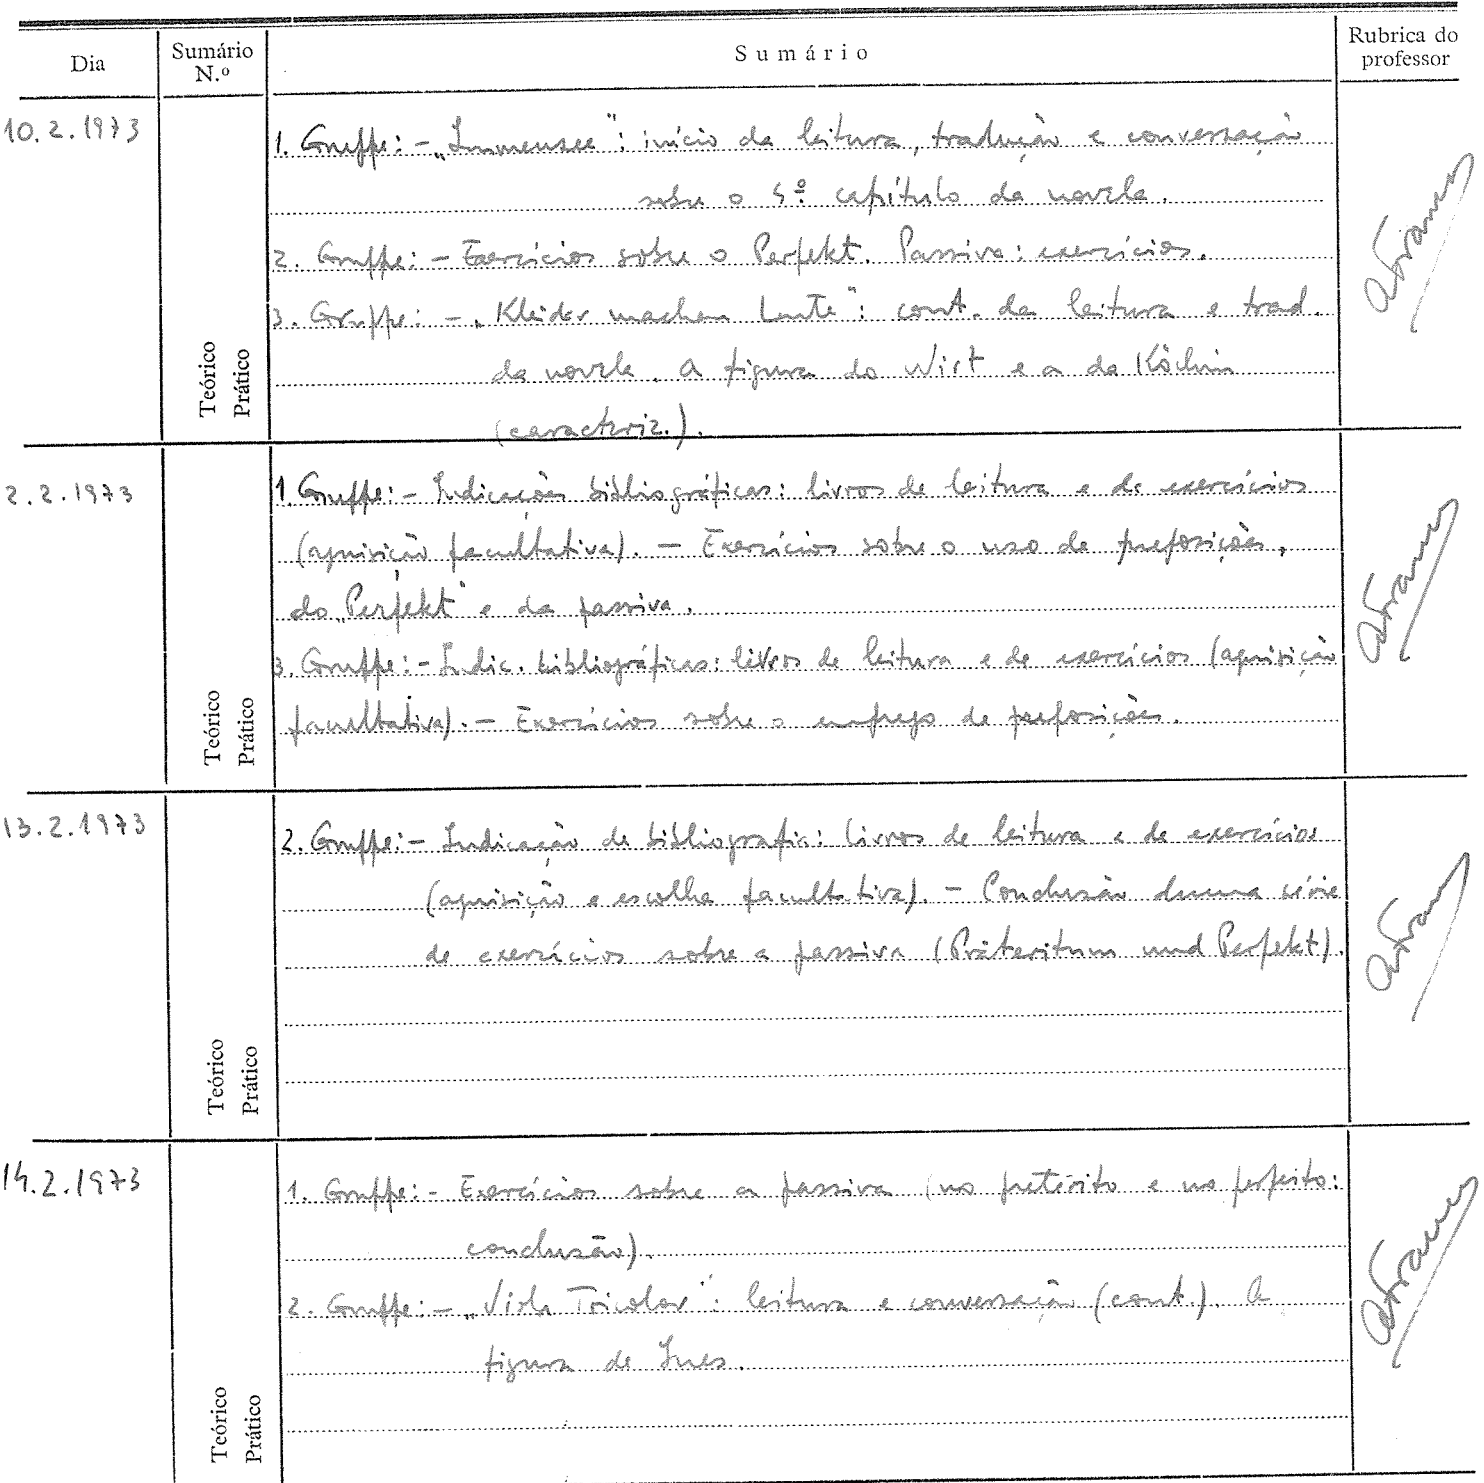 Dia Sumário N.º Sumário Rubrica do professor
10.2.1973
1. Gruppe: - „Immensee": início da leitura, tradução e conversação
sobre o 5º capítulo da novela.
2. Gruppe: - Exercícios sobre o Perfekt. Passiva: exercícios.
3. Gruppe: - „Kleider machen Leute": cont. da leitura e trad.
da novela. A figura do Wirt e a da Köchin
(caracteriz.).
Teórico
Prático
2.2.1973
1. Gruppe: - Indicações bibliográficas: livros de leitura e de exercícios
(aquisição facultativa). - Exercícios sobre o uso de preposições,
do „Perfekt" e da passiva.
3. Gruppe: - Indic. bibliográficas: livros de leitura e de exercícios (aquisição
facultativa). - Exercícios sobre o emprego de preposições.
Teórico
Prático
13.2.1973
2. Gruppe: - Indicação de bibliografia: livros de leitura e de exercícios
(aquisição e escolha facultativa). - Conclusão duma série
de exercícios sobre a passiva (Präteritum und Perfekt).
Teórico
Prático
14.2.1973
1. Gruppe: - Exercícios sobre a passiva (no pretérito e no perfeito:
conclusão).
2. Gruppe: - „Viola Tricolor": leitura e conversação (cont.). A
figura de Ines.
Teórico
Prático